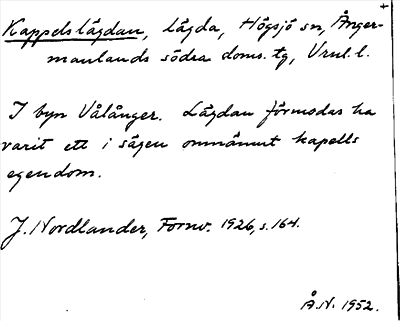 Kappelslägdan, lägda, Högsjö sn, Ånger-
manlands södra doms. tg, Vnrl. l.
I byn Vålånger. Lägdan förmodas ha
varit ett i sägen omnämnt kapells
egendom.
J. Nordlander, Fornv. 1926, s. 164.
Å.N. 1952.